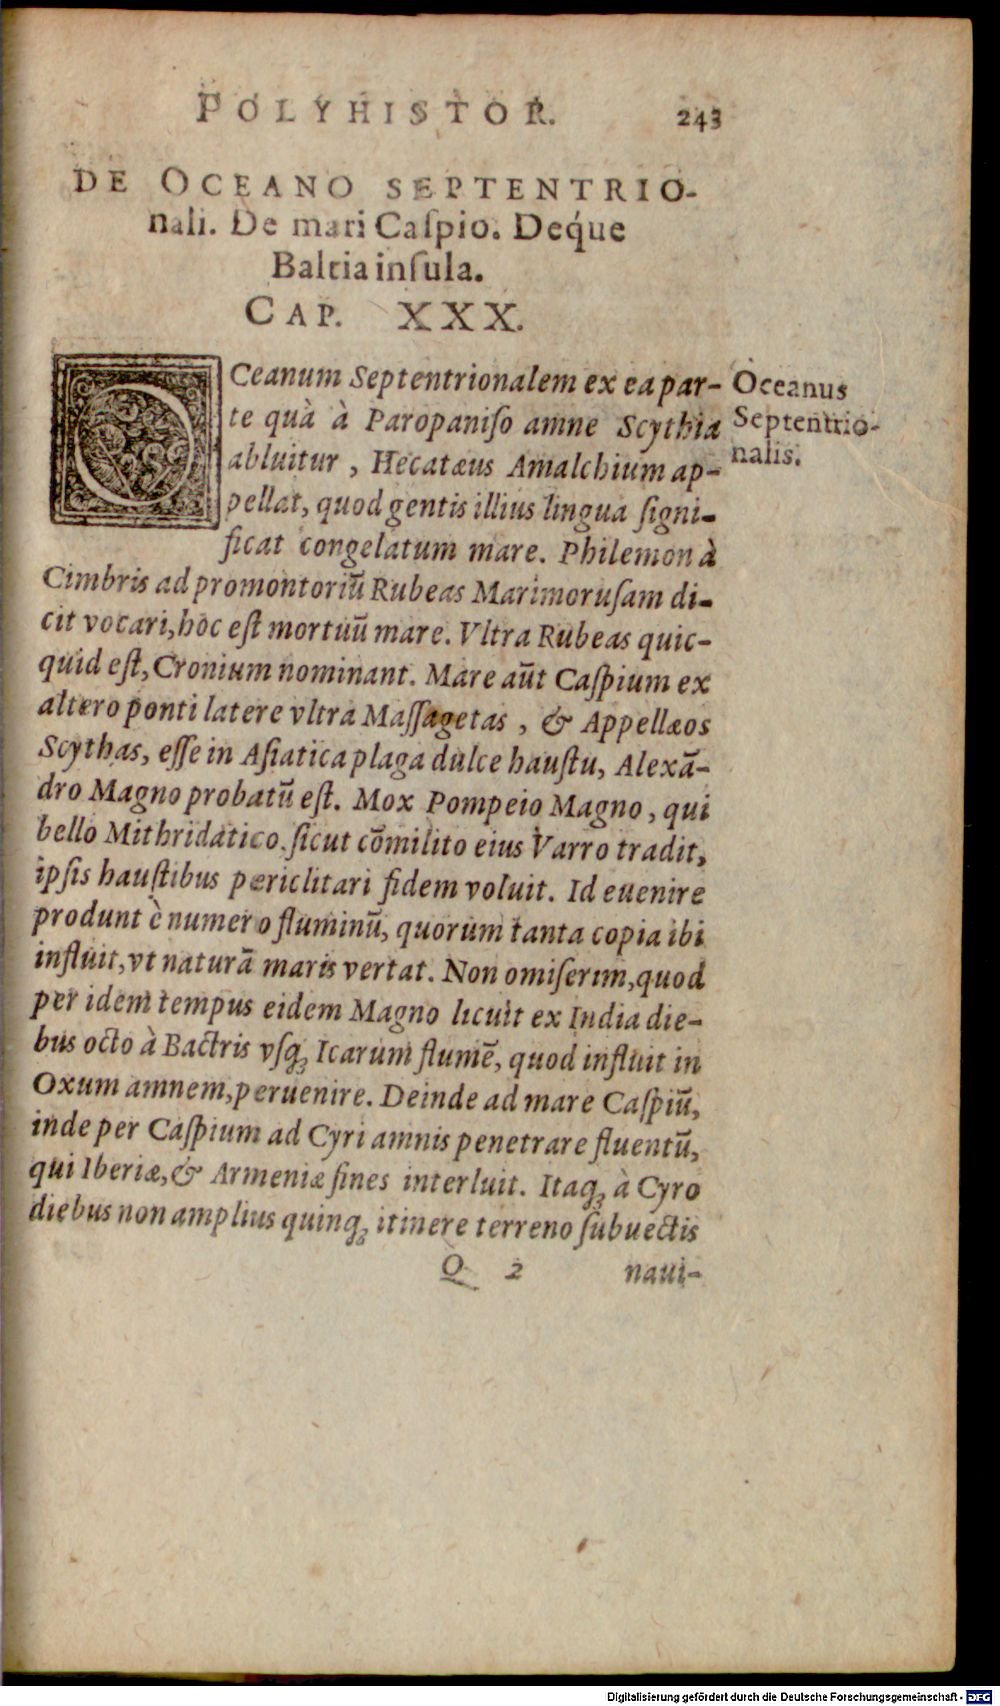 POLYHISTOR. 243
DE OCEANO SEPTENTRIO-
nali. De mari Caſpio. Deq́ue
Baltia inſula.
CAP. XXX.
OCeanum Septentrionalem ex ea par-
te quà à Paropaniſo amne Scythia
abluitur, Hecatæus Amalchium ap-
pellat, quod gentis illius lingua ſigni-
ficat congelatum mare. Philemon à
Cimbris ad promontoriũ Rubeas Marimoruſam di-
cit vocari, hoc eſt mortuũ mare. Vltra Rubeas quic-
quid eſt, Cronium nominant. Mare aũt Caſpium ex
altero ponti latere vltra Maſſagetas, & Appellæos
Scythas, eſſe in Aſiatica plaga dulce hauſtu, Alexã-
dro Magno probatũ eſt. Mox Pompeio Magno, qui
bello Mithridatico. ſicut cõmilito eius Varro tradit,
ipſis hauſtibus periclitari fidem voluit. Id euenire
produnt è numero fluminũ, quorum tanta copia ibi
influit, vt naturã maris vertat. Non omiſerim, quod
per idem tempus eidem Magno licuit ex India die-
bus octo à Bactris vſq; Icarum flumẽ, quod influit in
Oxum amnem, peruenire. Deinde ad mare Caſpiũ,
inde per Caſpium ad Cyri amnis penetrare fluentũ,
qui Iberiæ, & Armeniæ fines interluit. Itaq; à Cyro
diebus non amplius quinq; itinere terreno ſubuectis
Q 2 naui-
Oceanus
Septentrio-
nalis.
Digitalisierung gefördert durch die Deutsche Forschungsgemeinschaft - DFG